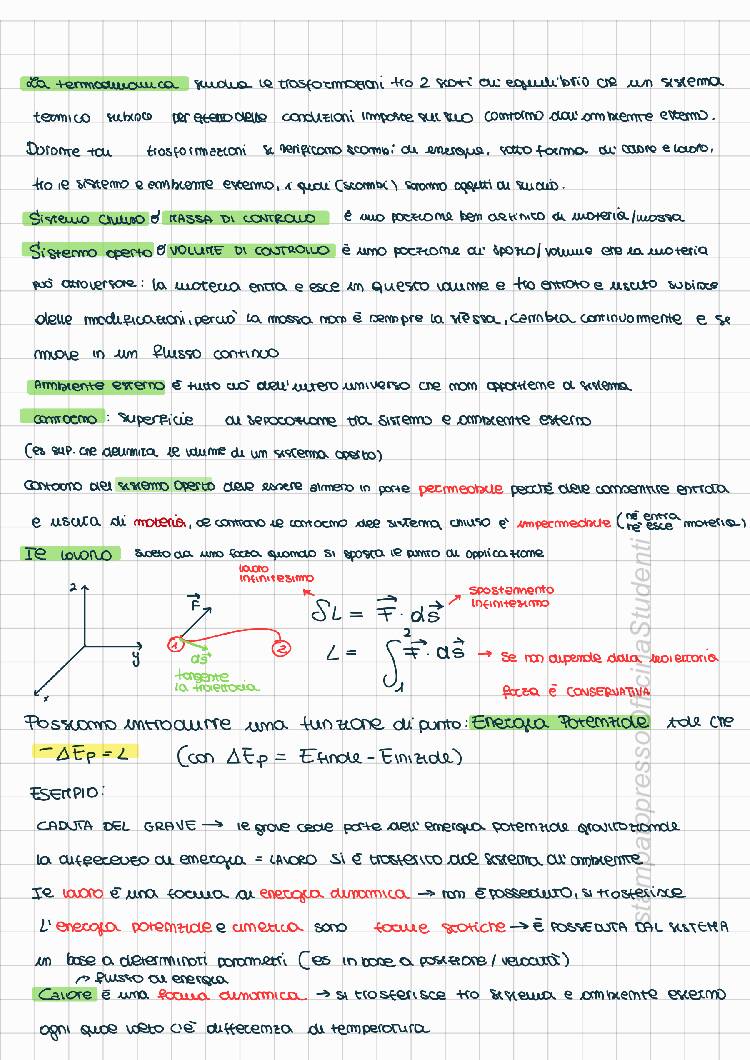 La termodinamica studia le trasformazioni tra 2 stati di equilibrio che un sistema
termico subisce per effetto delle condizioni imposte sul suo contorno dall'ambiente esterno.
Durante tali trasformazioni si verificano scambi di energia, sotto forma di calore e lavoro,
tra il sistema e ambiente esterno, i quali (scambi) saranno oggetti di studio.
Sistema chiuso o MASSA DI CONTROLLO è una porzione ben definita di materia/massa
Sistema aperto o VOLUME DI CONTROLLO è una porzione di spazio/volume che la materia
può attraversare: la materia entra e esce in questo volume e tra entrata e uscita subisce
delle modificazioni, perciò la massa non è sempre la stessa, cambia continuamente e se
muove in un flusso continuo
Ambiente esterno è tutto ciò dell'intero universo che non appartiene al sistema
contorno: superficie di separazione tra sistema e ambiente esterno
(es sup. che delimita il volume di un sistema aperto)
Contorno del sistema aperto deve essere almeno in parte permeabile perché deve consentire entrata
e uscita di materia, al contrario il contorno del sistema chiuso è impermeabile (né entra né esce materia)
Il lavoro svolto da una forza quando si sposta il punto di applicazione
lavoro infinitesimo
spostamento infinitesimo
z
y
x
F
1
2
ds
tangente
la traiettoria
δL = F · ds
L = ∫₁² F · ds → se non dipende dalla traiettoria
forza è CONSERVATIVA
Possiamo introdurre una funzione di punto: Energia Potenziale tale che
-ΔEp = L (con ΔEp = Efinale - Einiziale)
ESEMPIO:
CADUTA DEL GRAVE → il grave cede parte dell'energia potenziale gravitazionale
la differenza di energia = LAVORO si è trasferita dal sistema all'ambiente
Il lavoro è una forma di energia dinamica → non è posseduto, si trasferisce
L'energia potenziale e cinetica sono forme statiche → è POSSEDUTA DAL SISTEMA
in base a determinati parametri (es in base a posizione/velocità)
→ flusso di energia
Calore è una forma dinamica → si trasferisce tra sistema e ambiente esterno
ogni qual volta c'è differenza di temperatura
stampatopressoofficinaStudenti